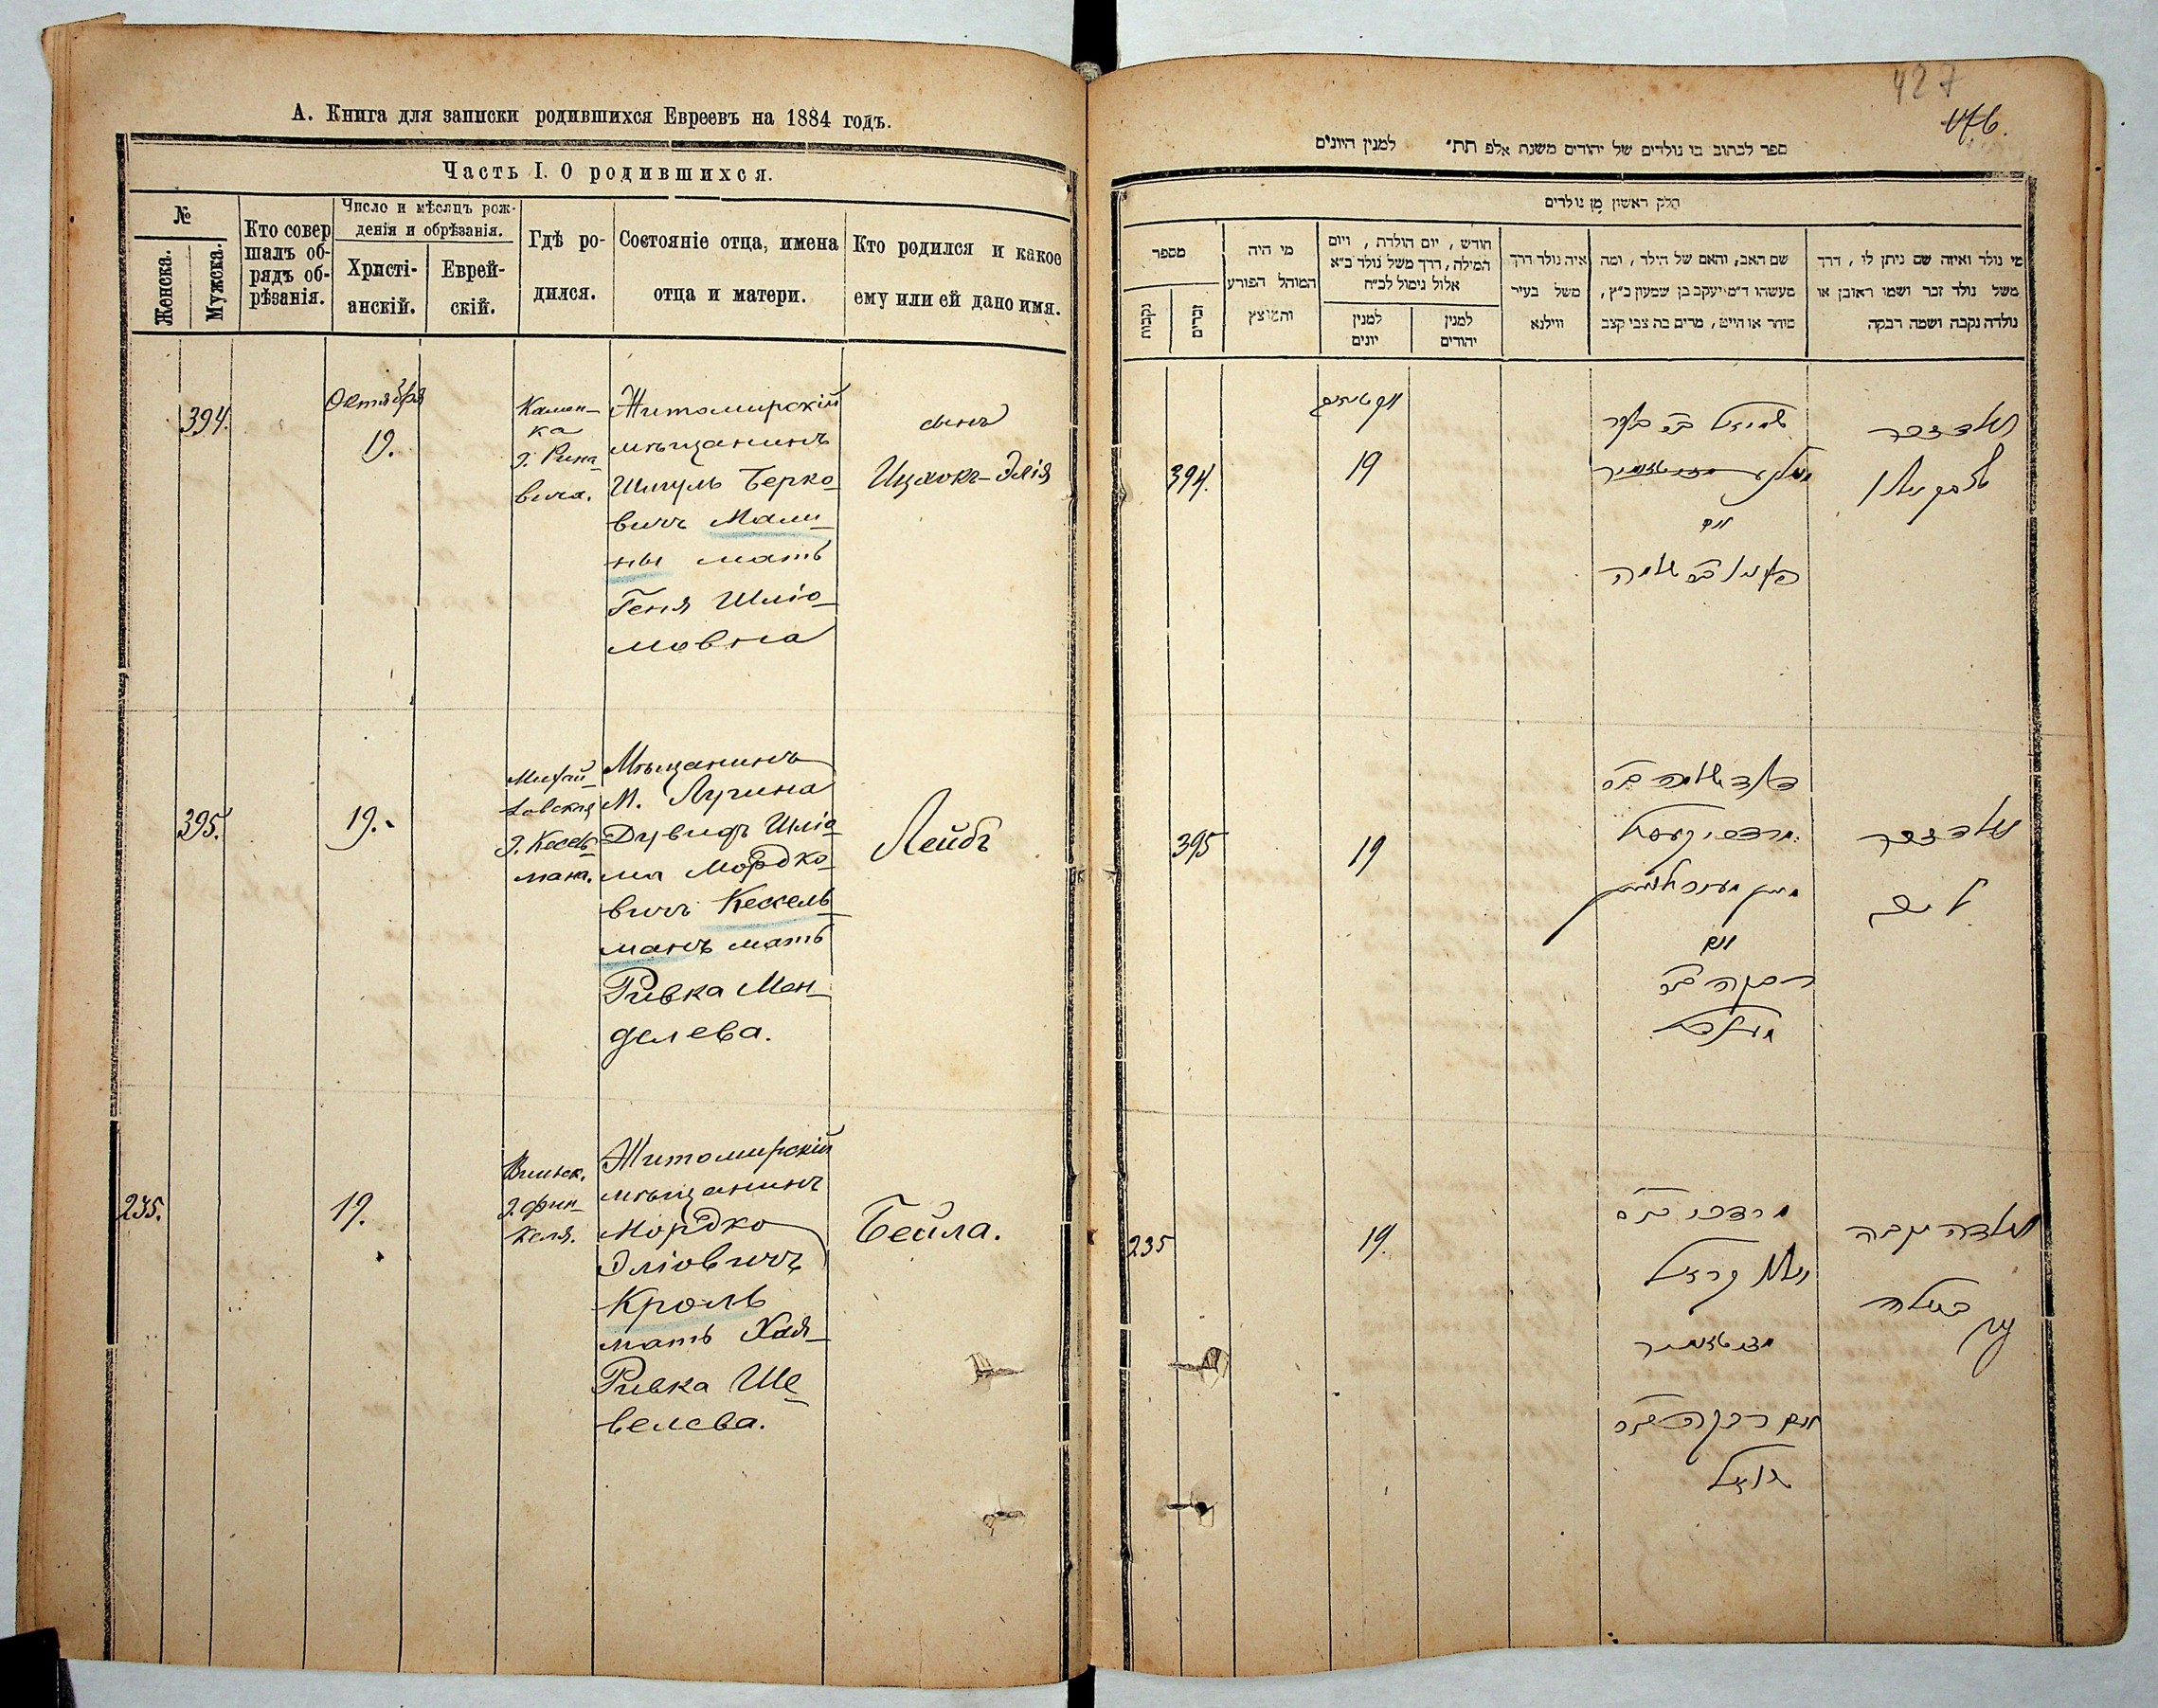 А. Книга для записки родившихся Евреевъ на 1884 годъ.
Часть I. О родившихся.
№
Женска.
Мужска.
Кто совер
шалъ об-
рядъ об-
рѣзанія.
Число и мѣсяцъ рож-
денія и обрѣзанія.
Христі-
анскій.
Еврей-
скій.
Гдѣ ро-
дился.
Состояніе отца, имена
отца и матери.
Кто родился и какое
ему или ей дано имя.
394.
Октября
19.
Камен-
ка
Житомирскій
мѣщанинъ
Шмуль Берко-
вичъ Мали-
ны мать
Геня Шліо-
мовна
сынъ
Ицхокъ-Элія
395.
19.
Михай-
ловская
д. Кесель-
мана.
Мѣщанинъ
М. Лугина
Дувидъ Шліо-
ма Мордко-
вичъ Кесель-
манъ мать
Ривка Мен-
делева.
Лейбъ
235.
19.
д. Фин-
келя.
Житомирскій
мѣщанинъ
Мордко
Эліовичъ
Кроль
мать Хая-
Ривка Ше-
велева.
Бейла.
427
176.
ספר לכתוב בו נולדים של יהודים משנת אלפ תת״ למנין היונים
חלק ראשון מן נולדים
מספר
נקבות
זכרים
מי היה
המוהל הפורע
והמוצץ
חודש, יום הולדת, ויום
המילה, דרך משל נולד כ״א
אלול נימול לכ״ח
למנין
יונים
למנין
יהודים
איה נולד דרך
משל בעיר
ווילנא
שם האב, והאם של הילד, ומה
מעשהו ד״מ יעקב בן שמעון כ״ץ,
סוחר או חייט, מרים בת צבי קצב
מי נולד ואיזה שם ניתן לו, דרך
משל נולד זכר ושמו ראובן או
נולדה נקבה ושמה רבקה
394.
19
נולד זכר
395
19
ואם
רבקה בת
מענדל
נולד זכר
ליב
235
19.
מרדכי בר
זיטאמיר
ואם רבקה בת
נולדה נקבה
ביילה